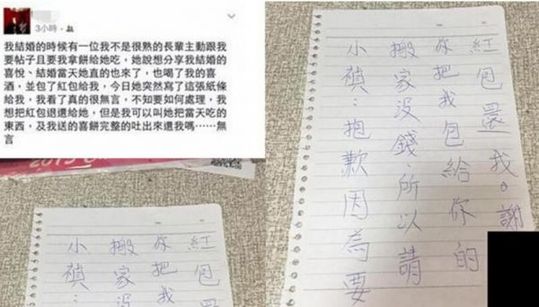 3小時
我結婚的時候有一位我不是很熟的長輩主動跟我
要帖子且要我拿餅給她吃，她說想分享我結婚的
喜悅、結婚當天她直的也來了，也喝了我的喜
酒，並包了紅包給我，今日她突然寫了這張紙條
給我，我看了真的很無言，不知要如何處理，我
想把紅包退還給她，但是我可以叫她把當天吃的
東西，及我送的喜餅完整的吐出來還我嗎⋯⋯無
言
2015
小禎：抱歉因為要
搬家沒錢，所以請
你把我包給你的
紅包還我。謝
小禎：
搬家沒
你把我
紅包還